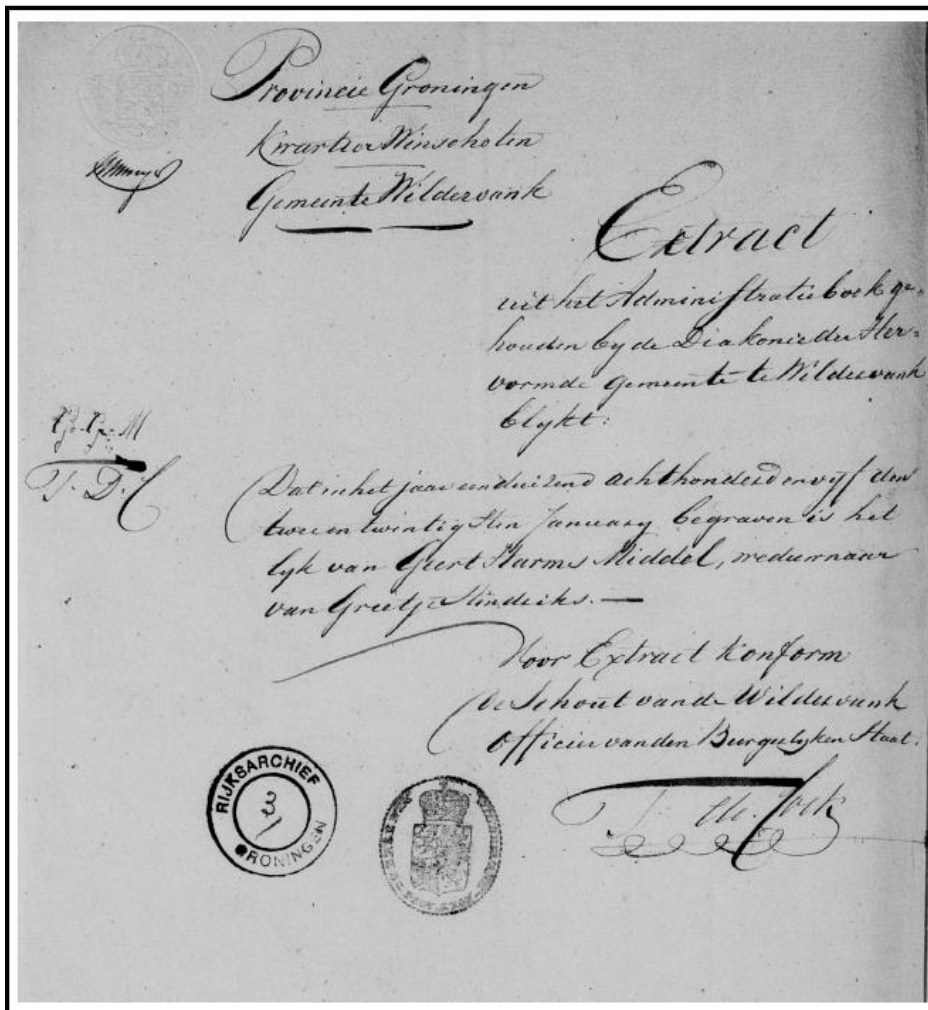 Provincie Groningen
Kwartier Winschoten
Gemeente Wildervank
Extract
uit het Administratie boek ge=
houden by de Diakonie der Her=
vormde gemeente te Wildervank
blykt:
T. D. C
Dat in het jaar eenduizend achthonderd en vyf den
twee en twintigsten January begraven is het
lyk van Geert Harms Middel, weduwnaar
van Greetje Hindriks. —
Voor Extract Konform
De Schout van de Wildervank
Officier van den Burgerlyken Staat:
RIJKSARCHIEF
3
GRONINGEN